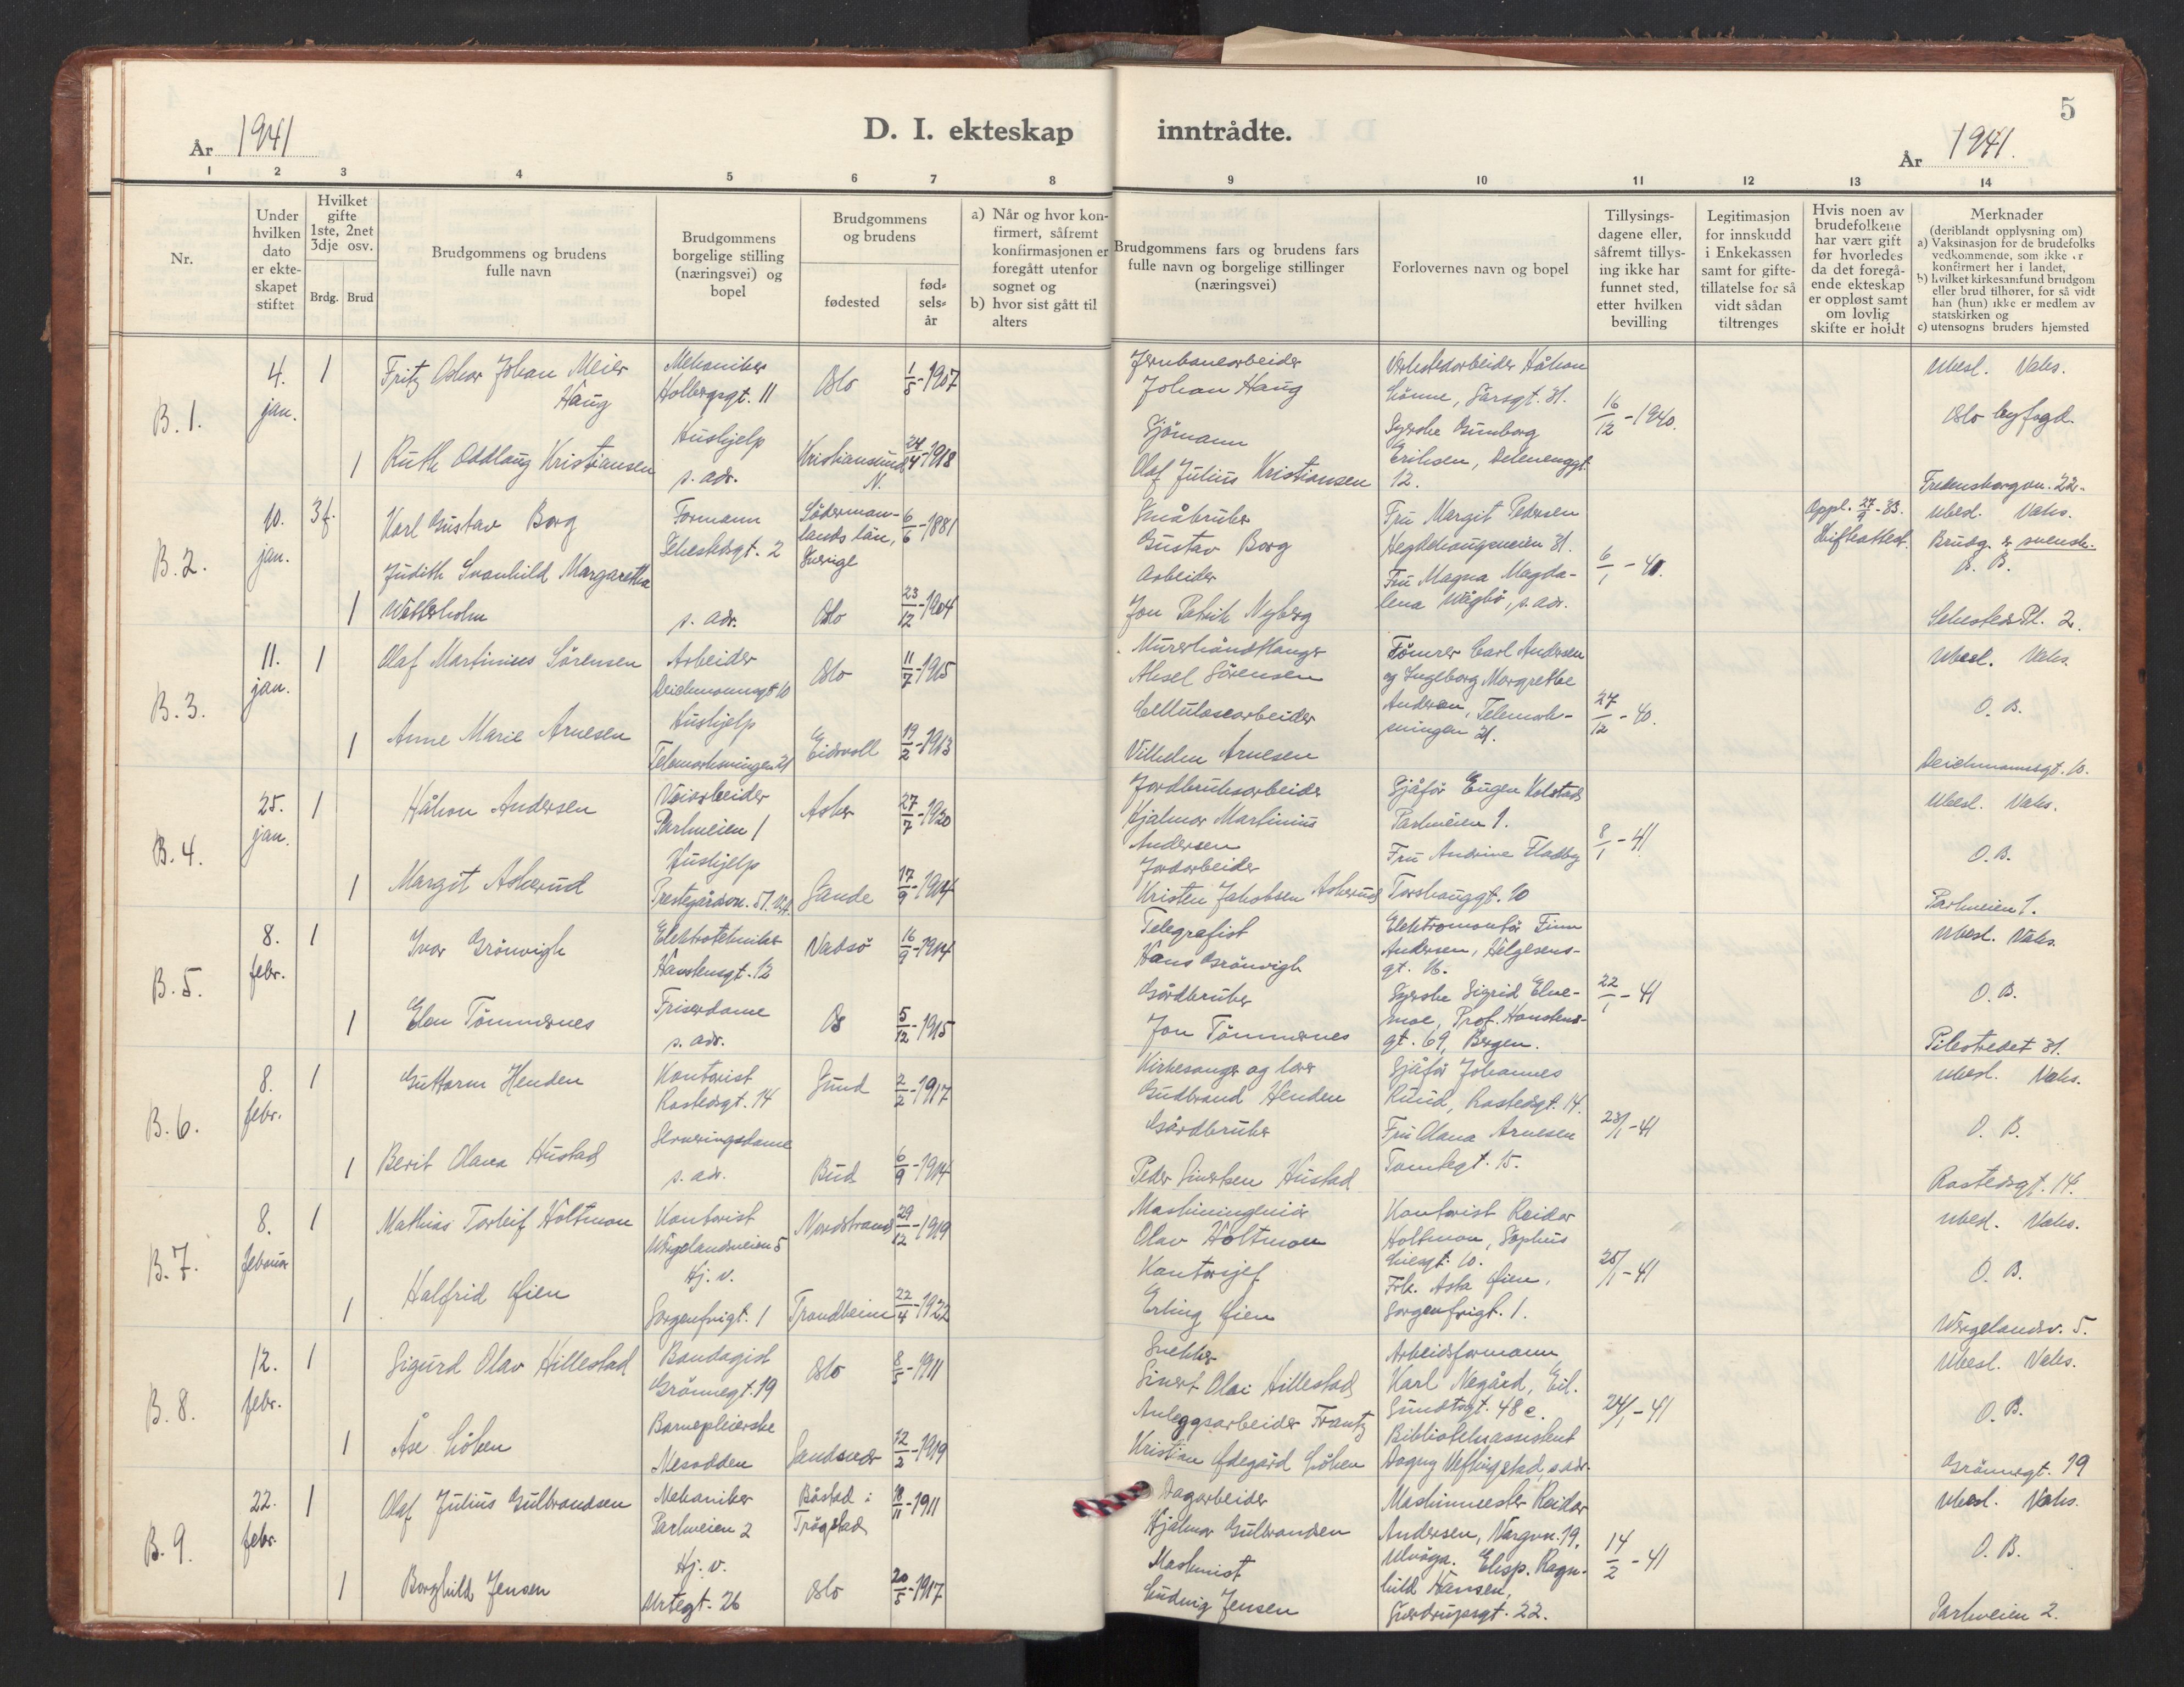 5
D. I. ekteskap inntrådte.
År 1941
År 1941.
1 2 3 4 5 6 7 8 9 10 11 12 13 14
Nr.
Under hvilken dato er ekteskapet stiftet
Hvilket gifte 1ste, 2net 3dje osv.
Brdg. Brud
Brudgommens og brudens fulle navn
Brudgommens borgelige stilling (næringsvei) og bopel
Brudgommens og brudens
fødested
fødselsår
a) Når og hvor konfirmert, såfremt konfirmasjonen er foregått utenfor sognet og
b) hvor sist gått til alters
Brudgommens fars og brudens fars fulle navn og borgelige stillinger (næringsvei)
Forlovernes navn og bopel
Tillysingsdagene eller, såfremt tillysing ikke har funnet sted, etter hvilken bevilling
Legitimasjon for innskudd i Enkekassen samt for giftetillatelse for så vidt sådan tiltrenges
Hvis noen av brudefolkene har vært gift før hvorledes da det foregående ekteskap er oppløst samt om lovlig skifte er holdt
Merknader (deriblandt opplysning om)
a) Vaksinasjon for de brudefolks vedkommende, som ikke er konfirmert her i landet,
b) hvilket kirkesamfund brudgom eller brud tilhører, for så vidt han (hun) ikke er medlem av statskirken og
c) utensogns bruders hjemsted
B. 1.
4. jan.
1
Fritz Oskar Johan Meier Haug
Mekaniker
Holbergsgt. 11
Oslo
1/5-1907
Jernbanearbeider
Johan Haug
Verkstedarbeider Håkon
Lönne, Sarsgt. 31.
16/12-1940.
Ubesl. Vaks.
Oslo byfogd.
1
Ruth Oddlaug Kristiansen
Hushjelp
s. adr.
Kristiansund N.
24/4-1918
Sjömann
Olaf Julius Kristiansen
Syerske Gunborg
Eriksen, Delenenggt. 12.
Fredensborgvn. 22.
B. 2.
10. jan.
3 f.
Karl Gustav Borg
Formann
Sehestedsgt. 2
Södermanlands län, Sverige
6/6-1881
Småbruker
Gustav Borg
Fru Margit Pedersen
Hegdehaugsveien 31.
6/1-41.
Oppl. 27/9-33.
Skifteattest.
Ubesl. Vaks.
Brudg. er svensk.
O. B.
1
Judith Svanhild Margaretha
s. adr.
Oslo
23/12-1904
Arbeider
Jon Patrik Nyberg
Fru Magna Magdalena
s. adr.
Sehesteds Pl. 2.
B. 3.
11. jan.
1
Olaf Martinius Sörensen
Arbeider
Deichmannsgt. 10
Oslo
11/7-1915
Murerhåndlanger
Aksel Sörensen
Tömrer Carl Andersen
og Ingeborg Margrethe
Andersen, Telemarksvingen 21.
27/12-40.
Ubesl. Vaks.
O. B.
1
Anne Marie Arnesen
Hushjelp
Telemarksvingen 21
Eidsvoll
19/2-1913
Cellulosearbeider
Vilhelm Arnesen
Deichmannsgt. 10.
B. 4.
25. jan.
1
Håkon Andersen
Veiarbeider
Parkveien 1
Asker
27/7-1920
Jordbruksarbeider
Hjalmar Martinius
Andersen
Sjåför Eugen Kolstad
Parkveien 1.
8/1-41
Ubesl. Vaks.
O. B.
1
Margit Askerud
Hushjelp
Prestegårdsvn. 51. V.A.
Sande
17/9-1904
Jordarbeider
Kristen Jakobsen Askerud
Fru Andrine Fladby
Torshauggt. 10
Parkveien 1.
B. 5.
8. febr.
1
Ivar Grönvigh
Elektrotekniker
Hanstensgt. 12
Vadsö
16/9-1904
Telegrafist
Hans Grönvigh
Elektromontör Finn
Andersen, Helgesensgt. 16.
22/1-41
Ubesl. Vaks.
O. B.
1
Elen Tömmernes
Friserdame
s. adr.
Os
5/12-1915
Gårdbruker
Jon Tömmernes
Syerske Sigrid Elvemoe, Prof. Hanstensgt. 69, Bergen.
Pilestredet 31.
B. 6.
8. febr.
1
Guttorm Henden
Kontorist
Rostedsgt. 14
Gund
2/2-1917
Kirkesanger og lærer
Gudbrand Henden
Sjåför Johannes
Ruud, Rostedsgt. 14.
23/1-41
Ubesl. Vaks.
O. B.
1
Berit Olava Hustad
Serveringsdame
s. adr.
Bud
6/9-1914
Gårdbruker
Peder Sivertsen Hustad
Fru Olana Arnesen
Tomtegt. 15.
Rostedsgt. 14.
B. 7.
8. februar
1
Mathias Torleif Holtmon
Kontorist
Wergelandsveien 5
Nordstrand
29/12-1919
Maskiningeniör
Olav Holtmon
Kontorist Reidar
Holtmon, Sophus
Liesgt. 10.
25/1-41
Ubesl. Vaks.
O. B.
1
Halfrid Øien
Hj. v.
Sorgenfrigt. 1
Trondheim
22/4-1922
Kontorsjef
Erling Øien
Frk. Asta Øien,
Sorgenfrigt. 1.
Wergelandsv. 5.
B. 8.
12. febr.
1
Sigurd Olav Hillestad
Bandagist
Grönnegt. 19
Oslo
8/5-1911
Snekker
Sivert Olai Hillestad
Arbeidsformann
Karl Negård, Eil.
Sundtsgt. 48 c.
24/1-41
Ubesl. Vaks.
O. B.
1
Åse Löken
Barnepleierske
Nesodden
Sandsvær
12/2-1919
Anleggsarbeider Frantz
Kristian Ødegård Löken
Bibliotekassistent
Dagny Veflingstad, s. adr.
Grönnegt. 19
B. 9.
22. febr.
1
Olaf Julius Gulbrandsen
Mekaniker
Parkveien 2
Båstad i Trögstad
18/11-1911
Dagarbeider
Hjalmar Gulbrandsen
Maskinmester Reidar
Andersen, Vargvn. 19,
Ulvöya.
14/2-41
Ubesl. Vaks.
O. B.
1
Borghild Jensen
Hj. v.
Urtegt. 26
Oslo
20/5-1917
Maskinist
Ludvig Jensen
Eksp. Ragnhild Hansen,
Sverdrupsgt. 22.
Parkveien 2.